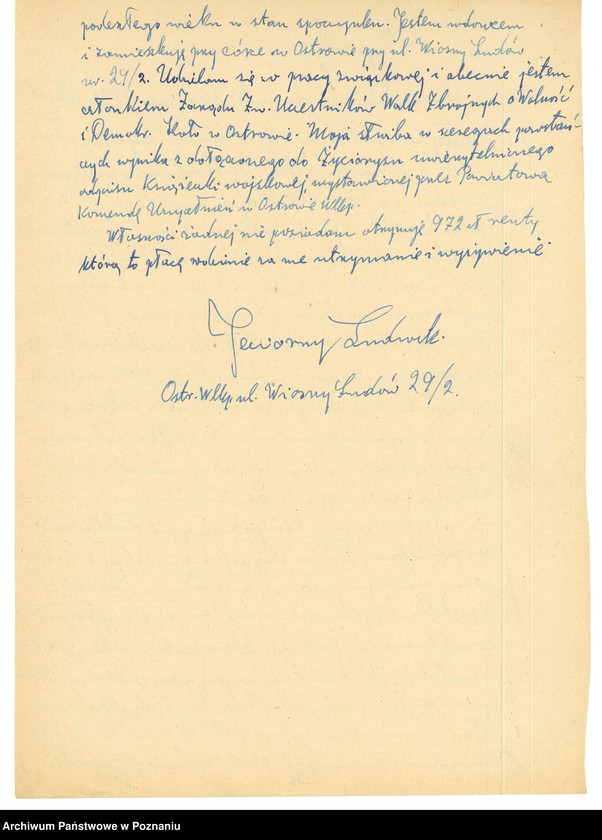 podeszłego wieku w stan spoczynku. Jestem wdowcem
i zamieszkuję przy córce w Ostrowie przy ul. Wiosny Ludów
nr. 29/2. Udzielam się w pracy związkowej i obecnie jestem
członkiem Zarządu Zw. Uczestników Walk Zbrojnych o Wolność
i Demokr. Koło w Ostrowie. Moja służba w szeregach powstań-
czych wynika z dołączonego do Życiorysu uwierzytelnionego
odpisu Książeczki wojskowej, wystawionej przez Powiatową
Komendę Uzupełnień w Ostrowie Wlkp.
Własności żadnej nie posiadam otrzymuję 972 zł renty
którą to płacę rodzinie za me utrzymanie i wyżywienie
Jeziorny Ludwik.
Ostr. Wlkp ul. Wiosny Ludów 29/2.
Archiwum Państwowe w Poznaniu